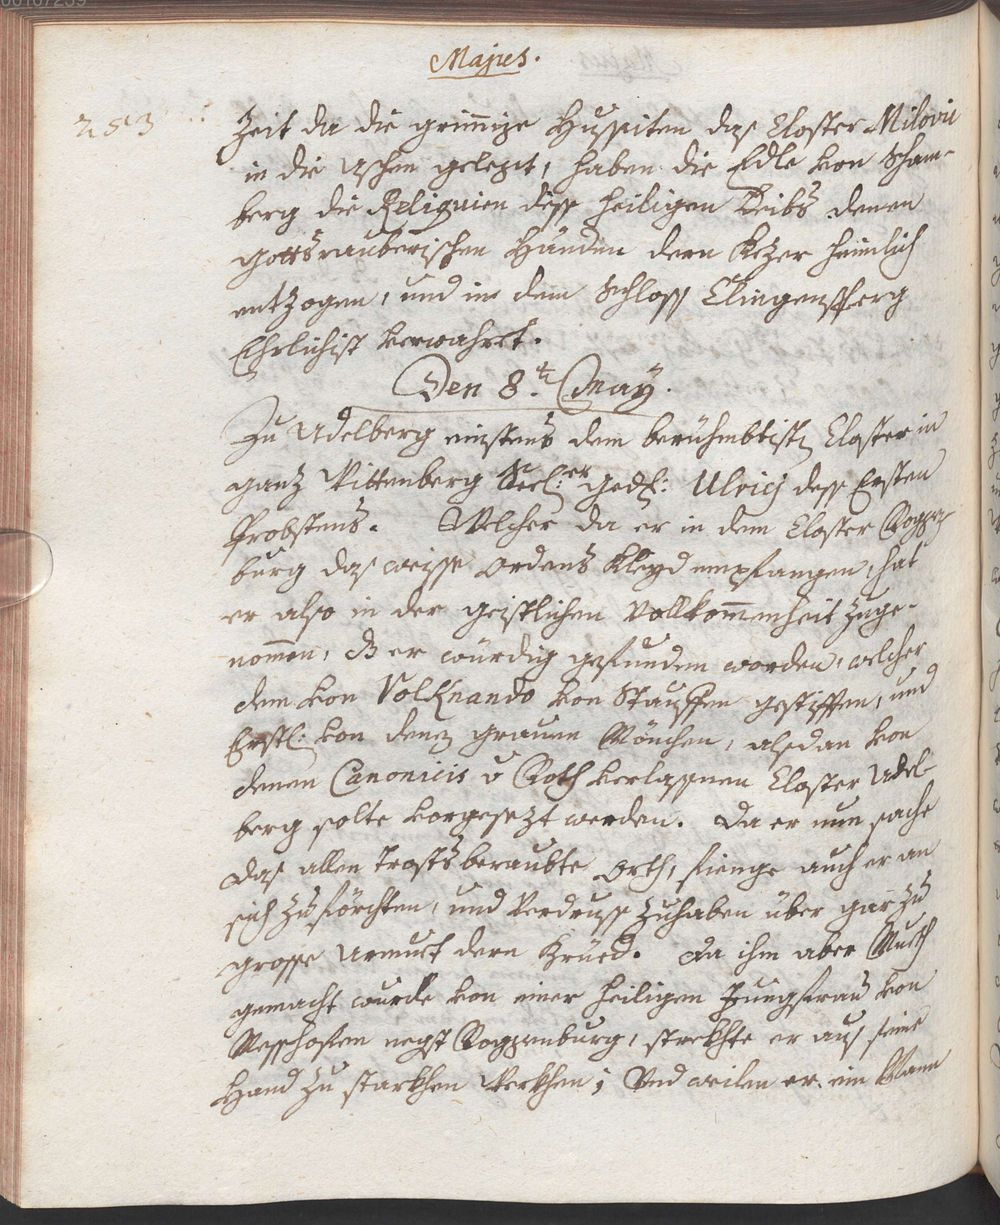 Majus.
253
Zeit da die grimige Hussiten das Closter Milovii
in die aschen gelegt, haben die Edle von Scham-
berg die Reliquien diss heiligen Leibs denen
gottsrauberischen Händen dern Kezer heimlich
entzogen, und in dem Schloss Clingensperg
Ehrlichist verwahret.
Den 8.t May.
Zu Adelberg einstens dem berühmbtistn Closter in
ganz Wittenberg Seel:er gedh: Ulrici dess Ersten
Probstens. Welcher da er in dem Closter Roggen-
burg das weisse Ordens Kleyd empfangen, hat
er also in der geistlichen Vollkomenheit zuge-
nomen, dz er würdig gefunden worden, welcher
dem von Volknando von Stauffen gestifften, und
Erstl: von denen grauen Mönchen, alsdan von
denen Canonicis v Roth verlassnen Closter Adel-
berg solte vorgesezt werden. Da er nun sache
das allen Trosts beraubte Orth, fienge auch er an
sich zu förchten, und Verdruss zuhaben über gar zu
grosse Armuet dern Brüed. Da ihm aber Mueth
gemacht wurde von einer heiligen Jungfrau von
Messhofen negst Roggenburg, streckhte er aus seine
Hand zu starkhen Werkhen; Und weilen er ein Mann